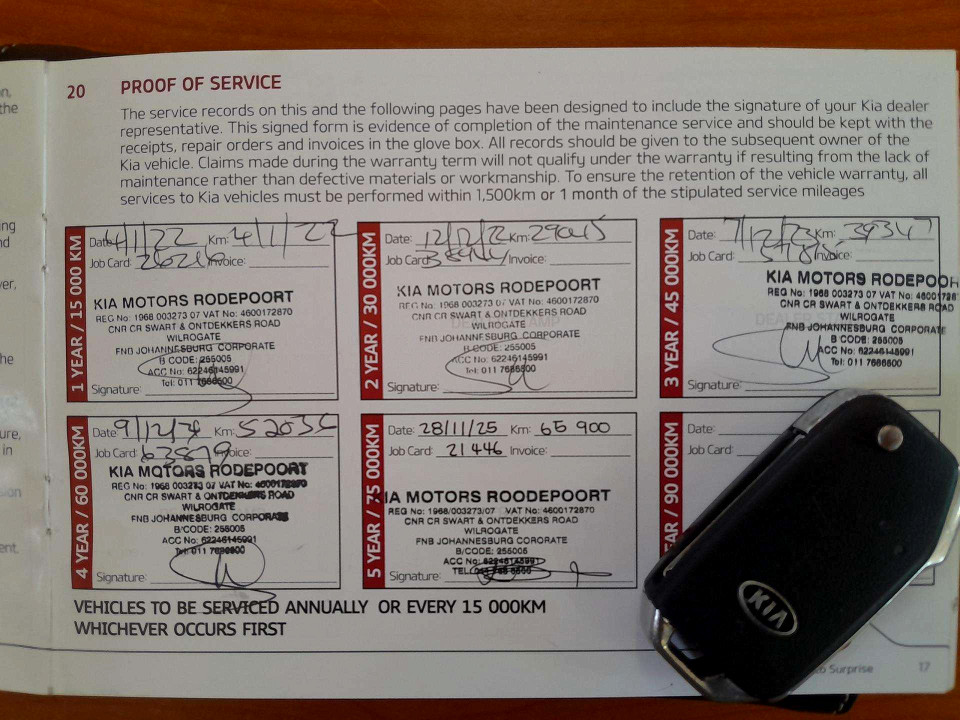 20 PROOF OF SERVICE
The service records on this and the following pages have been designed to include the signature of your Kia dealer
representative. This signed form is evidence of completion of the maintenance service and should be kept with the
receipts, repair orders and invoices in the glove box. All records should be given to the subsequent owner of the
Kia vehicle. Claims made during the warranty term will not qualify under the warranty if resulting from the lack of
maintenance rather than defective materials or workmanship. To ensure the retention of the vehicle warranty, all
services to Kia vehicles must be performed within 1,500km or 1 month of the stipulated service mileages
1 YEAR / 15 000 KM
Date: 4/1/22 Km: 4/1/22
Job Card: Invoice:
KIA MOTORS RODEPOORT
REG No: 1968 003273 07 VAT No: 4600172870
CNR CR SWART & ONTDEKKERS ROAD
WILROGATE
FNB JOHANNESBURG CORPORATE
B CODE: 255005
ACC No: 62246145991
Tel: 011 7686500
Signature:
2 YEAR / 30 000KM
Date: 12/12/22 Km: 29015
Job Card: Invoice:
KIA MOTORS RODEPOORT
REG No: 1968 003273 07 VAT No: 4600172870
CNR CR SWART & ONTDEKKERS ROAD
WILROGATE
FNB JOHANNESBURG CORPORATE
B CODE: 255005
ACC No: 62246145991
Tel: 011 7686500
Signature:
3 YEAR / 45 000KM
Date: 7/12/23 Km: 39347
Job Card: Invoice:
KIA MOTORS RODEPOOR
REG No: 1968 003273 07 VAT No: 46001728
CNR CR SWART & ONTDEKKERS ROAD
WILROGATE
FNB JOHANNESBURG CORPORATE
B CODE: 255005
ACC No: 62246145991
Tel: 011 7686500
Signature:
4 YEAR / 60 000KM
Date: 9/12/24 Km: 52036
Job Card: 63879 Invoice:
KIA MOTORS RODEPOORT
REG No: 1968 003273 07 VAT No: 4600172870
CNR CR SWART & ONTDEKKERS ROAD
WILROGATE
FNB JOHANNESBURG CORPORATE
B/CODE: 255005
ACC No: 62246145991
Tel: 011 7686500
Signature:
5 YEAR / 75 000KM
Date: 28/11/25 Km: 65 900
Job Card: 21446 Invoice:
IA MOTORS ROODEPOORT
REG No: 1968/003273/07 VAT No: 4600172870
CNR CR SWART & ONTDEKKERS ROAD
WILROGATE
FNB JOHANNESBURG CORORATE
B/CODE: 255005
ACC No: 62246145991
TEL:
Signature:
YEAR / 90 000KM
Date:
Job Card:
VEHICLES TO BE SERVICED ANNUALLY OR EVERY 15 000KM
WHICHEVER OCCURS FIRST
KIA
Surprise 17